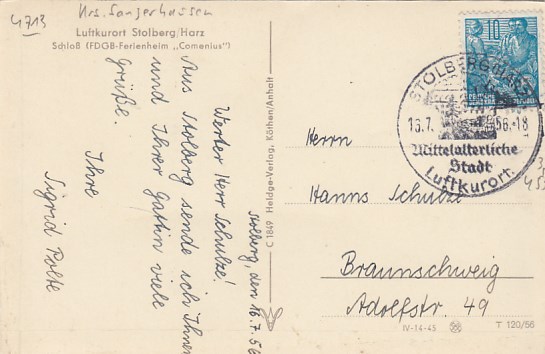 4713
Krs. Sangerhausen
Luftkurort Stolberg/Harz
Schloß (FDGB-Ferienheim „Comenius")
Stolberg, den 16.7.56
Werter Herr Schulze!
Aus Stolberg sende ich Ihnen
und Ihrer Gattin viele
Grüße.
Ihre
Sigrid Polte
C 1849 Heldge-Verlag, Köthen/Anhalt
10
STOLBERG (HARZ)
16.7.56.-18
Mittelalterliche
Stadt
Luftkurort.
Herrn
Hanns Schulze
Braunschweig
Adolfstr. 49
IV-14-45
T 120/56